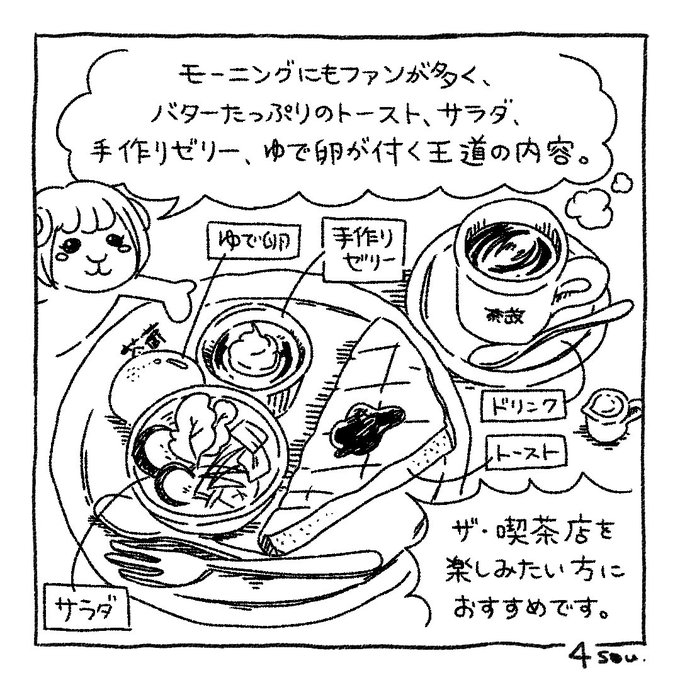 モーニングにもファンが多く、
バターたっぷりのトースト、サラダ、
手作りゼリー、ゆで卵が付く王道の内容。
ゆで卵
手作り
ゼリー
茶故
ドリンク
トースト
サラダ
ザ・喫茶店を
楽しみたい方に
おすすめです。
4 sou.